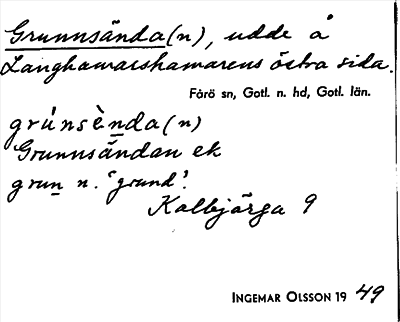 Grunnsända(n), udde å
Langhamarshamarens östra sida.
Fårö sn, Gotl. n. hd, Gotl. län.
grúnsènda(n)
Grunnsändan ek
grun n. 'grund'.
Kalbjärga 9
INGEMAR OLSSON 19 49